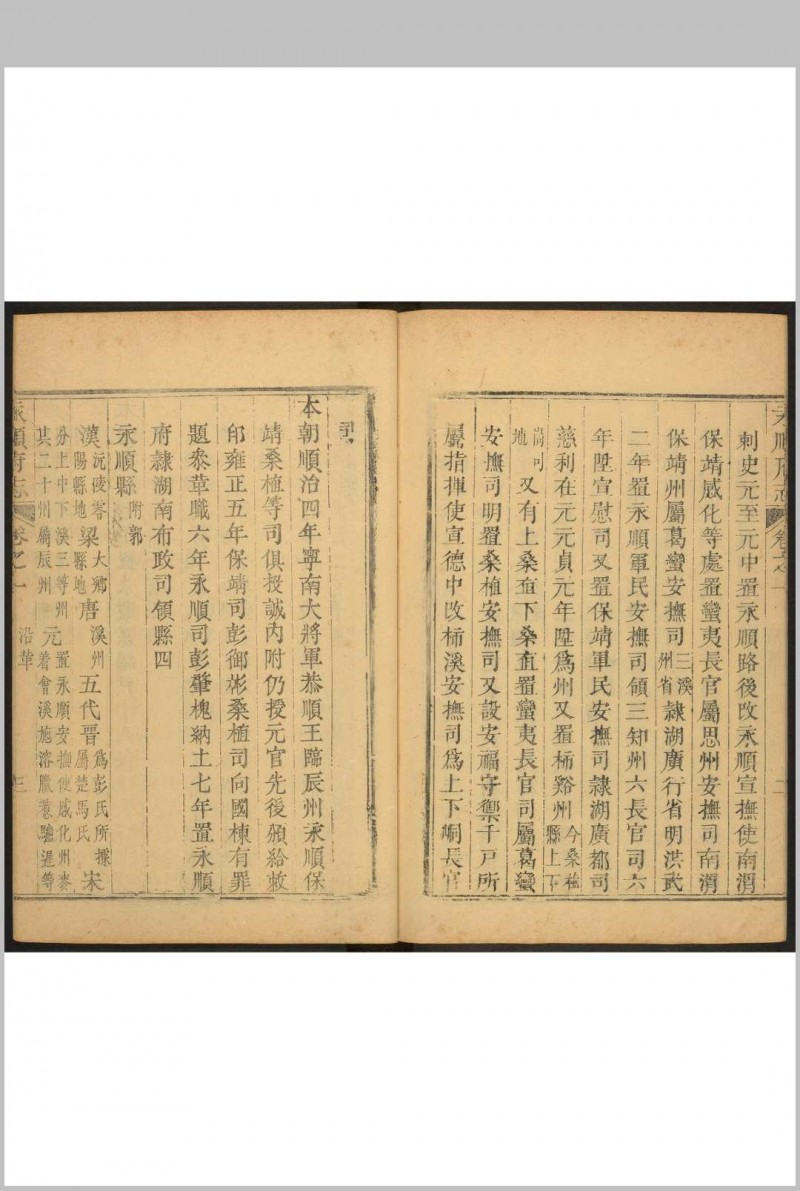 永順府志 卷之一 二
刺史元至元中置永順路後改永順宣撫使南渭
保靖感化等處置蠻夷長官屬思州安撫司南渭
保靖州屬葛蠻安撫司三溪州省隸湖廣行省明洪武
二年置永順軍民安撫司領三知州六長官司六
年陞宣慰司又置保靖軍民安撫司隸湖廣都司
慈利在元元貞元年陞爲州又置柿谿州今桑植縣上下
峝司地又有上桑直下桑直置蠻夷長官司屬葛蠻
安撫司明置桑植安撫司又設安福守禦千戶所
屬指揮使宣德中改柿溪安撫司爲上下峒長官
司
本朝順治四年寧南大將軍恭順王臨辰州永順保
靖桑植等司俱投誠内附仍授元官先後頒給敕
印雍正五年保靖司彭御彬桑植司向國棟有罪
題叅革職六年永順司彭肇槐納土七年置永順
府隸湖南布政司領縣四
永順縣附郭
漢沅陵零陽縣地梁大鄉縣地唐溪州五代晉爲彭氏所據屬楚馬氏宋
分上中下溪三等州其二十州屬辰州元置永順安撫使感化州麥着會溪施溶臘惹驢遲等
永順府志 卷之一 沿革 三